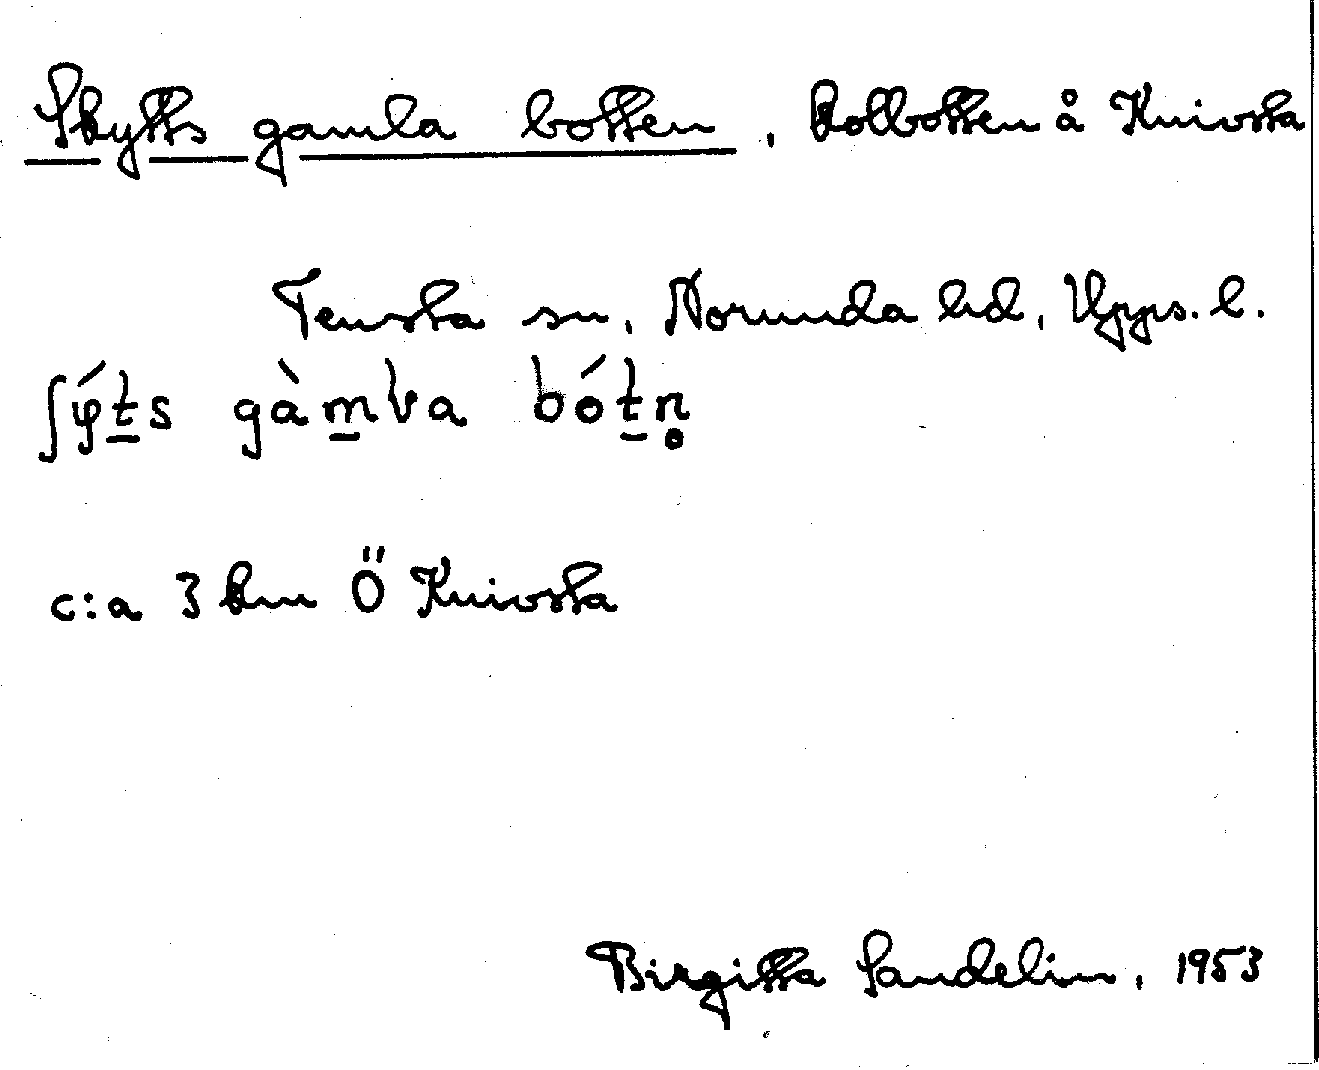 Skytts gamla botten, kolbotten å Knivsta
Tensta sn, Norunda hd, Upps. l.
ʃý̱ts gàm̱ɽa bóṯn̥
c:a 3 km Ö Knivsta
Birgitta Sandelin, 1953